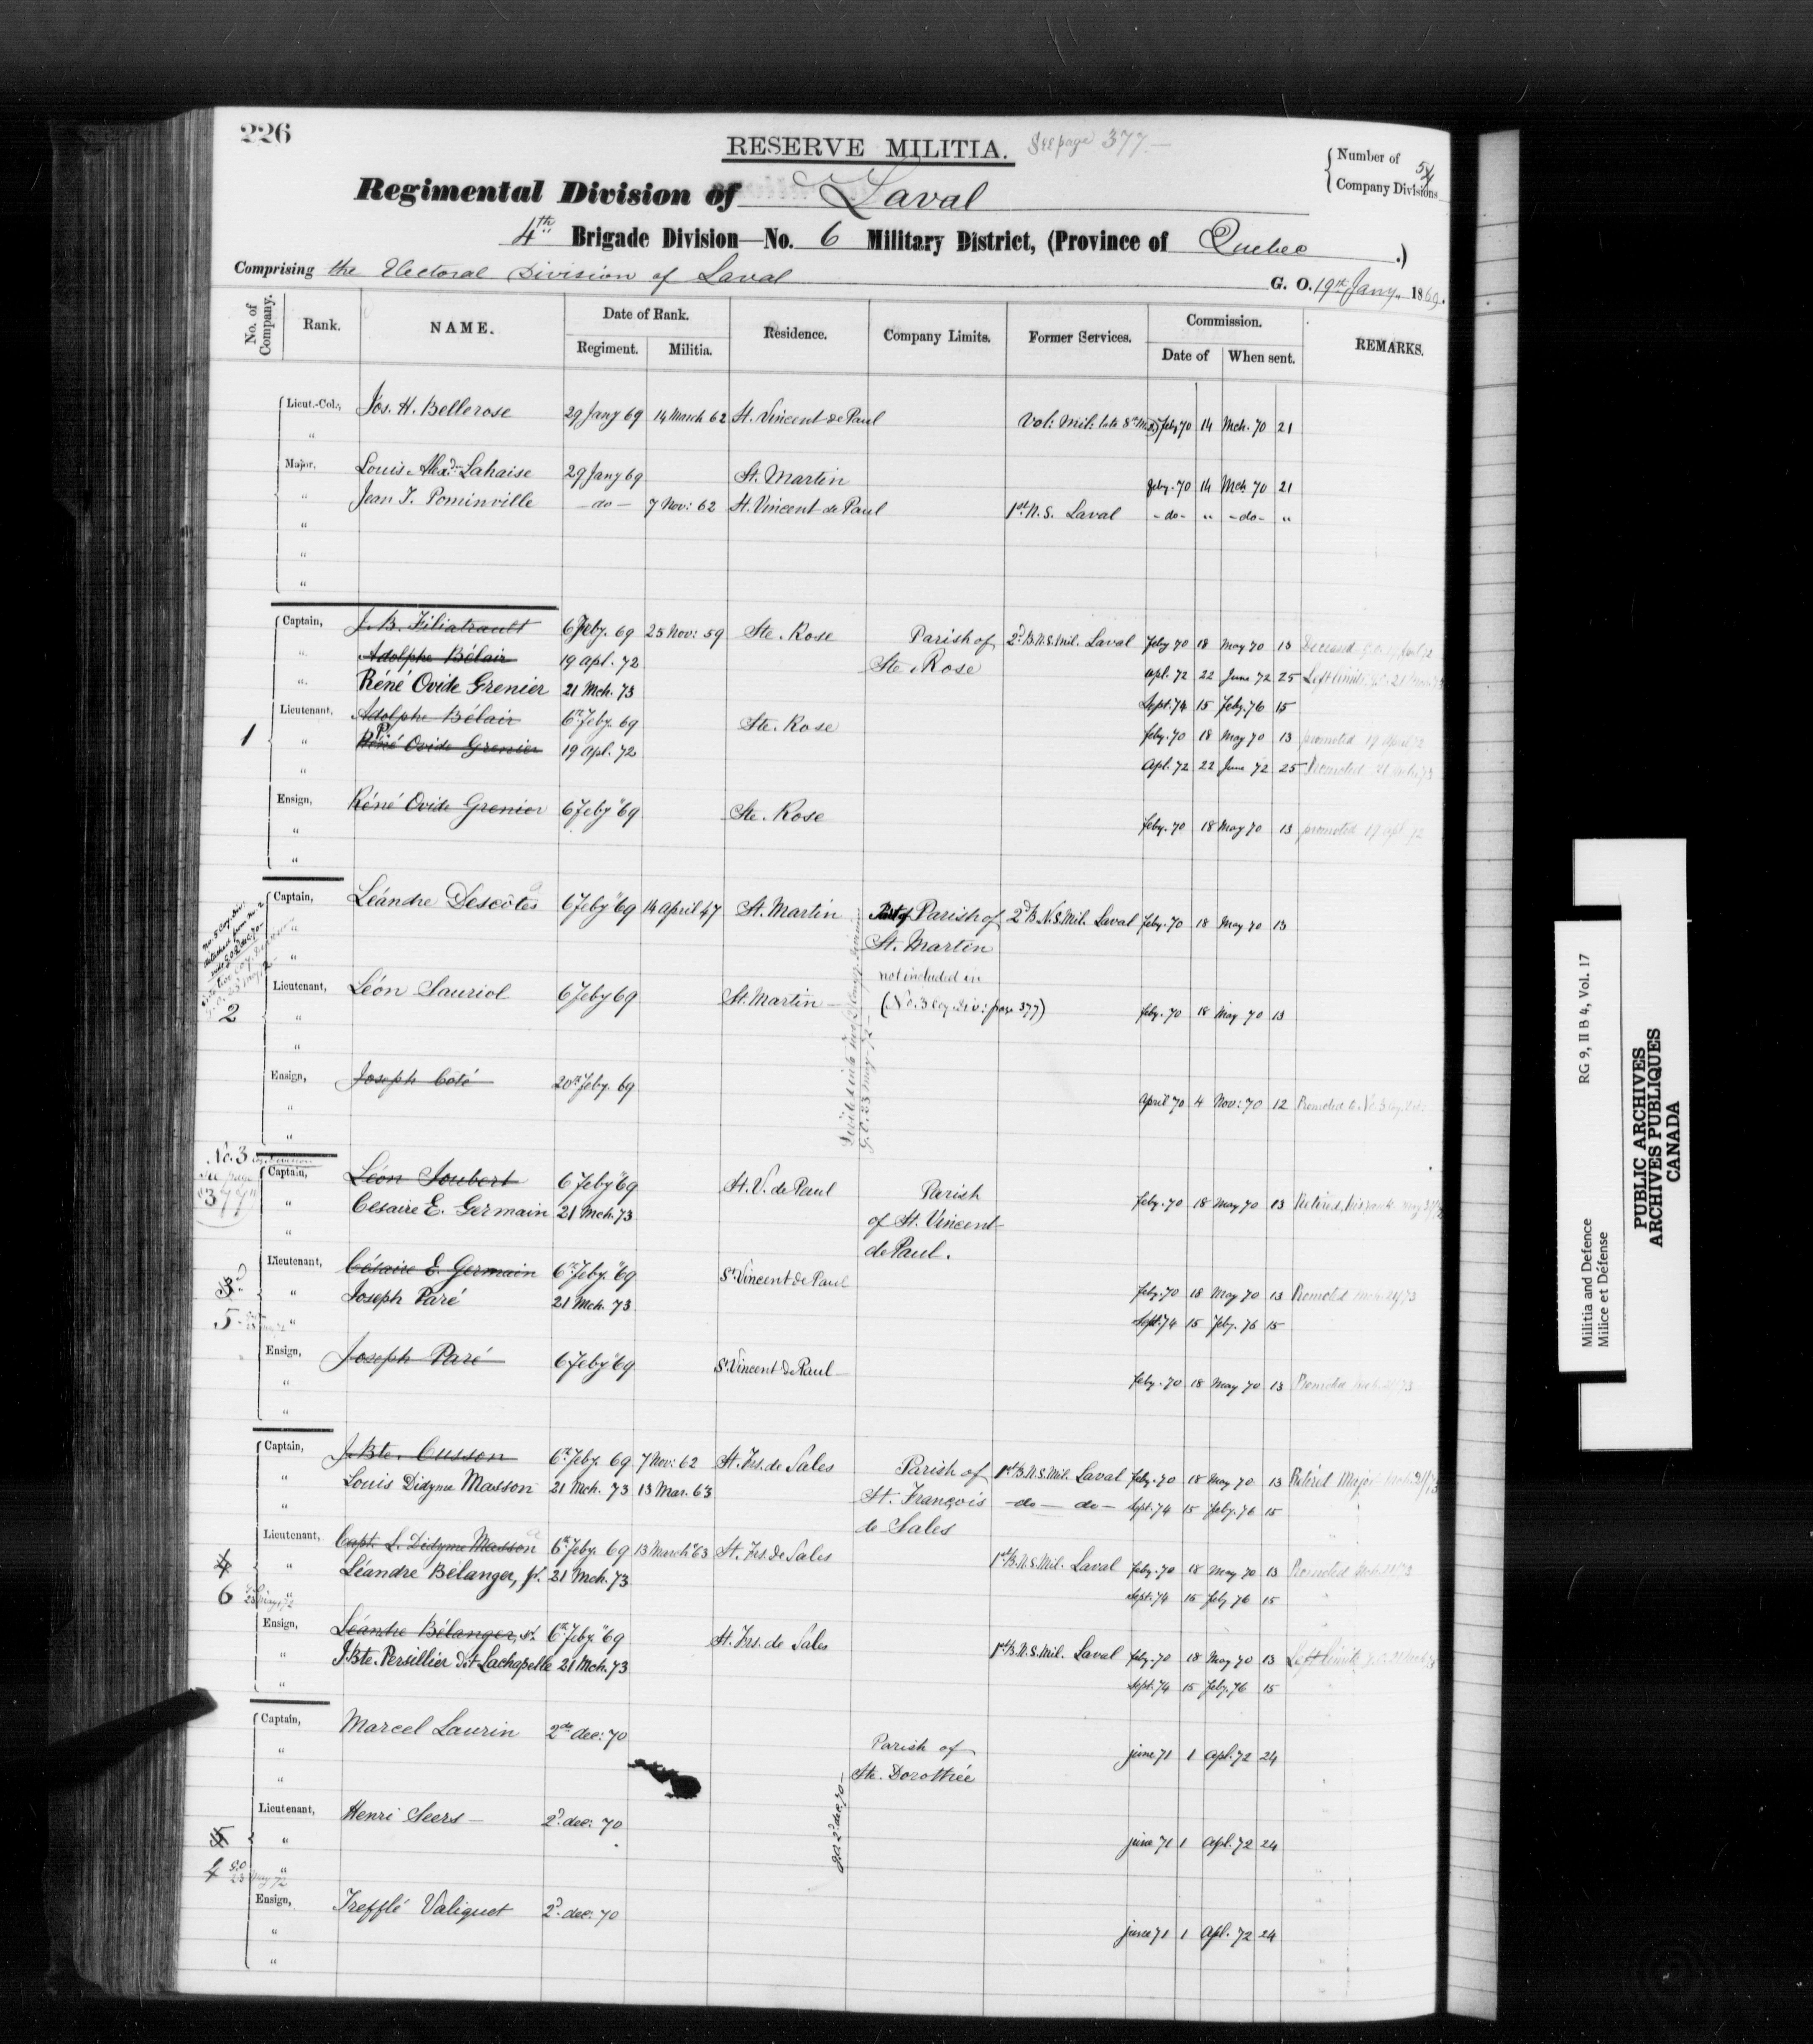 226
RESERVE MILITIA. See page 377.—
{ Number of Company Divisions
Regimental Division of Laval
4th Brigade Division—No. 6 Military District, (Province of Quebec.)
Comprising the Electoral Division of Laval G. O. 19th Jany. 1869.
No. of Company. Rank. NAME. Date of Rank. Residence. Company Limits. Former Services. Commission. REMARKS.
Regiment. Militia. Date of When sent.
Lieut.-Col., Jos. H. Bellerose 29 Jany 69 14 March 62 St. Vincent de Paul Vol: Mil: late 8th Feby 70 14 Mch. 70 21
"
Major, Louis Alexd. Lahaise 29 Jany 69 St. Martin Feby. 70 14 Mch 70 21
" Jean J. Pominville — do — 7 Nov: 62 St. Vincent de Paul 1st N. S. Laval - do - " - do - "
"
"
"
Captain, J. B. Filiatrault 6 Feby. 69 25 Nov: 59 Ste. Rose Parish of 2d B. N. S. Mil. Laval Feby 70 18 May 70 13 Deceased
" Adolphe Bélair 19 apl. 72 Ste. Rose apl. 72 22 June 72 25 Left limits G.O. 21
" Réné Ovide Grenier 21 Mch. 73 Sept. 74 15 Feby. 76 15
Lieutenant, Adolphe Bélair 6th Feby. 69 Ste. Rose Feby. 70 18 May 70 13 promoted 19 April 72
1 " Réné Ovide Grenier 19 apl. 72 Apl. 72 22 June 72 25 Promoted 21 Mch. 73
"
Ensign, Réné Ovide Grenier 6 Feby "69 Ste. Rose Feby. 70 18 May 70 13 promoted 19 apl 72
"
"
Captain, Léandre Descôtes 6 Feby "69 14 April 47 St. Martin Part of Parish of 2d B. N. S. Mil. Laval Feby. 70 18 May 70 13
" St. Martin
" not included in
Lieutenant, Léon Sauriol 6 Feby 69 St. Martin — (No. 3 Coy. Div: page 377) Feby. 70 18 May 70 13
2 "
"
Ensign, Joseph Côté 20th Feby. 69 April 70 4 Nov: 70 12 Promoted to No.
"
"
Divided into two Coy. Divisions
G.O. 23 May 72
No. 3 Coy. Division
See page
377
Captain, Léon Joubert 6 Feby "69 St. V. de Paul Parish Feby. 70 18 May 70 13 Retired,
" Cesaire E. Germain 21 Mch. 73 of St. Vincent
" de Paul.
Lieutenant, Césaire E. Germain 6th Feby. "69 St. Vincent de Paul Feby. 70 18 May 70 13 Promoted
3d " Joseph Paré 21 Mch. 73 Sept. 74 15 Feby. 76 15
5 "
Ensign, Joseph Paré 6 Feby "69 St. Vincent de Paul — Feby. 70 18 May 70 13 Promoted
"
"
Captain, J. Bte. Cusson 6th Feby. 69 7 Nov: 62 St. Frs. de Sales Parish of 1st B. N. S. Mil. Laval Feby. 70 18 May 70 13 Retired Major
" Louis Didyme Masson 21 Mch. 73 13 Mar. 63 St. François — do — do — Sept. 74 15 Feby. 76 15
" de Sales
Lieutenant, Capt. L. Didyme Masson 6th Feby. 69 13 March "63 St. Frs. de Sales 1st B. N. S. Mil. Laval Feby. 70 18 May 70 13 Promoted
4 " Léandre Bélanger, jr. 21 Mch. 73 Sept. 74 15 Feby 76 15
6 "
Ensign, Léandre Bélanger, 6th Feby. "69 St. Frs. de Sales 1st B. N. S. Mil. Laval Feby. 70 18 May 70 13 Left limits
" J. Bte. Persillier dit Lachapelle 21 Mch. 73 Sept. 74 15 Feby. 76 15
"
Captain, Marcel Laurin 2de dec: 70 Parish of june 71 1 apl. 72 24
" Ste. Dorothée
"
Lieutenant, Henri Seers — 2d. dec: 70 june 71 1 apl. 72 24
5 "
4 "
G.O. 2d. dec. 70—
Ensign, Trefflé Valiquet 2d. dec. 70 june 71 1 apl. 72 24
"
"
RG 9, II B 4, Vol. 17
Militia and Defence
Milice et Défense
PUBLIC ARCHIVES
ARCHIVES PUBLIQUES
CANADA